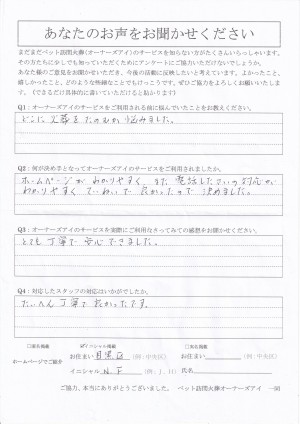 あなたのお声をお聞かせください
まだまだペット訪問火葬(オーナーズアイ)のサービスを知らない方がたくさんいらっしゃいます。
その方たちに少しでも知っていただくためにアンケートにご協力いただけないでしょうか。
あなた様のご意見をお聞かせいただき、今後の活動に反映したいと考えています。よかったこと、
嬉しかったこと、どのような些細なことでもけっこうです。ぜひご協力をよろしくお願いいたします。
(できるだけ具体的に書いていただけると助かります)
Q1：オーナーズアイのサービスをご利用される前に悩んでいたことをお教えください。
どこに火葬をたのむか悩みました。
Q2：何が決め手となってオーナーズアイのサービスをご利用されましたか。
ホームページがわかりやすく、また、電話したさいの対応が
わかりやすくていねいで良かったので決めました。
Q3：オーナーズアイのサービスを実際にご利用なさってみての感想をお聞かせください。
とても丁寧で安心できました。
Q4：対応したスタッフの対応はいかがでしたか。
たいへん丁寧で良かったです。
□匿名掲載 ☑イニシャル掲載 □実名掲載
ホームページでご紹介
お住まい 目黒区 (例：中央区) お住まい (例：中央区)
イニシャル N.F (例：J.H) 氏名
ご協力、本当にありがとうございました。 ペット訪問火葬オーナーズアイ 一同